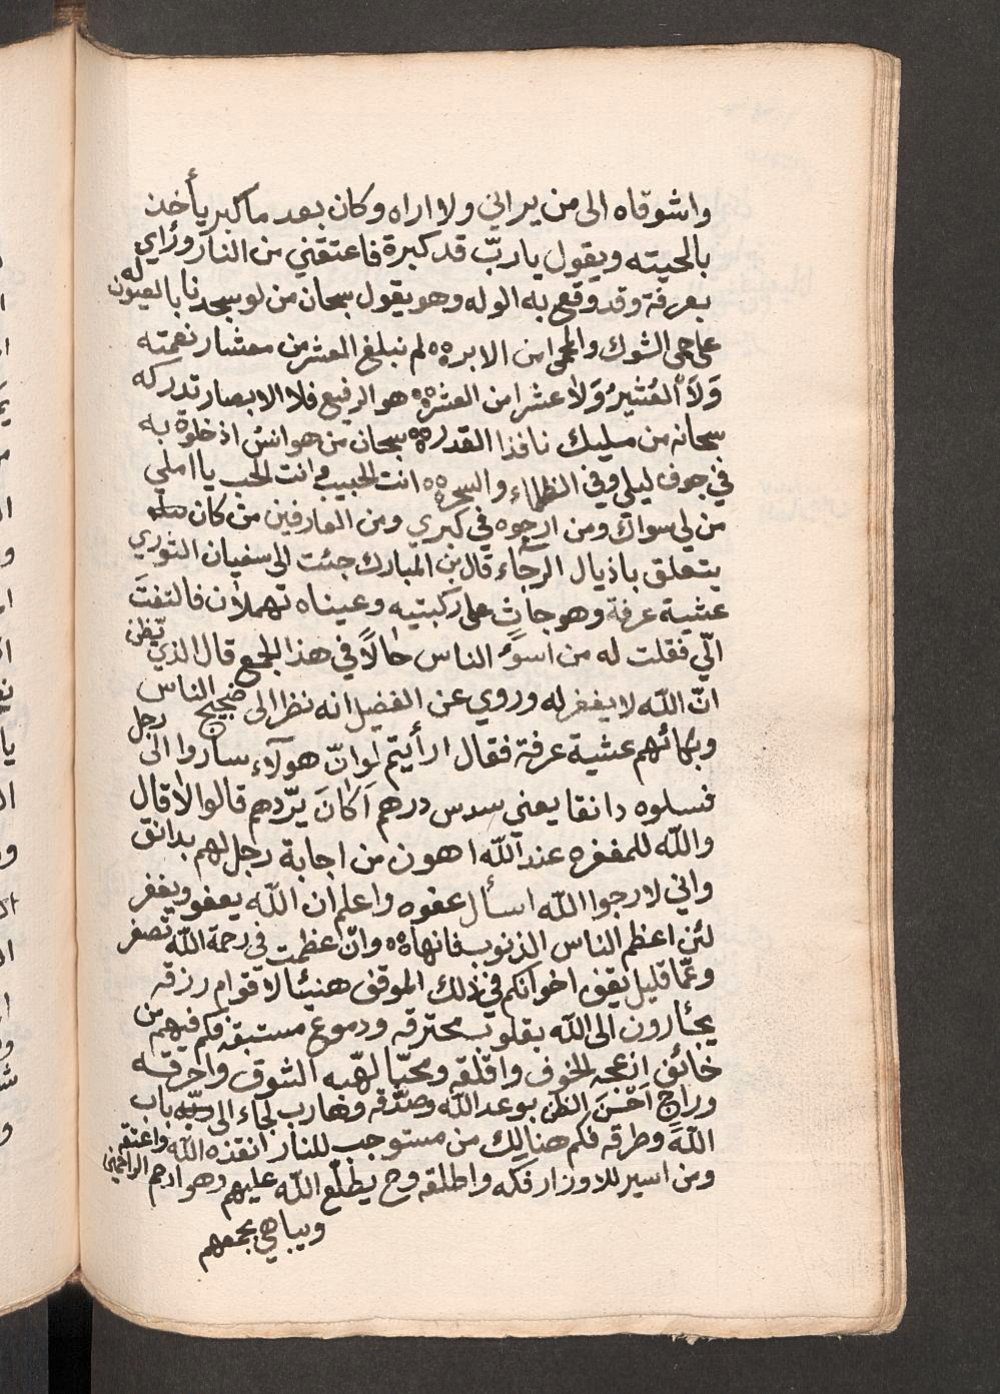 واشوقاه الى من يراني ولا اراه وكان بعد ما كبر يأخذ
بالحيته ويقول يا ربّ قد كبرة فاعتقني من النار ورُاي
بعرفة وقد وقع به الوله وهو يقول سبحان من لو سجدنا بالعيون له
على حمى الشوك والمحمى من الابره لم نبلغ العشر من معشار نعمته
وَلَا العُشَيرُ وَلا عشرا من العشره هو الرفيع فلا الابصار تدركه
سبحانه من مليك نافذا القدره سبحان من هو انسى اذ خلوة به
في جوف ليلي وفي الظلماء والسحره انت الحبيب وانت الحب يا املي
من لي سواك ومن ارجوه في كبري ومن العارفين من كان
يتعلق باذيال الرجاء قال بن المبارك جئت الى سفيان الثوري
عشية عرفة وهو جاثٍ على ركبتيه وعيناه تهملان فالتفتَ
الّي فقلت له من اسوءُ الناس حالًا في هذا الجمع قال الذي يّظن
انّ الله لا يغفر له وروي عن الفضيل انه نظر الى ضجيج الناس
وبكائهم عشية عرفة فقال ارأيتم لو انّ هولآء ساروا الى رجل
فسلوه دانقا يعني سدس درهم اَكانَ يرّدهم قالوا لا قال
والله للمغفره عند الله اهون من اجابة رجل لهم بدانق
واني لارجوا الله اسأل عفوه واعلم ان الله يعفو ويغفر
لئن اعظم الناس الذنوب فانها وانّ عظمت في رحمة الله تصغر
وعمّا قليل تقف اخوانكم في ذلك الموقف هنيئا لاقوام رزقه
يجأرون الى الله بقلوب محترقه ودموع مستبقه فكم فيهم من
خائف ازعجه الخوف واقلقه ومحبّا لهّبه الشوق واحرقه
وراج اَحْسَنَ الظن بوعد الله وصدّقه وهارب لجاء الى ربّه باب
اللهَ وطرقه فكم هنالك من مستوجب للنار انقذه الله واعتقه
ومن اسير للاوزار فكه واطلقه وح يطلّع الله عليهم وهو ارحم الراحمين
ويباهي بجمعهم